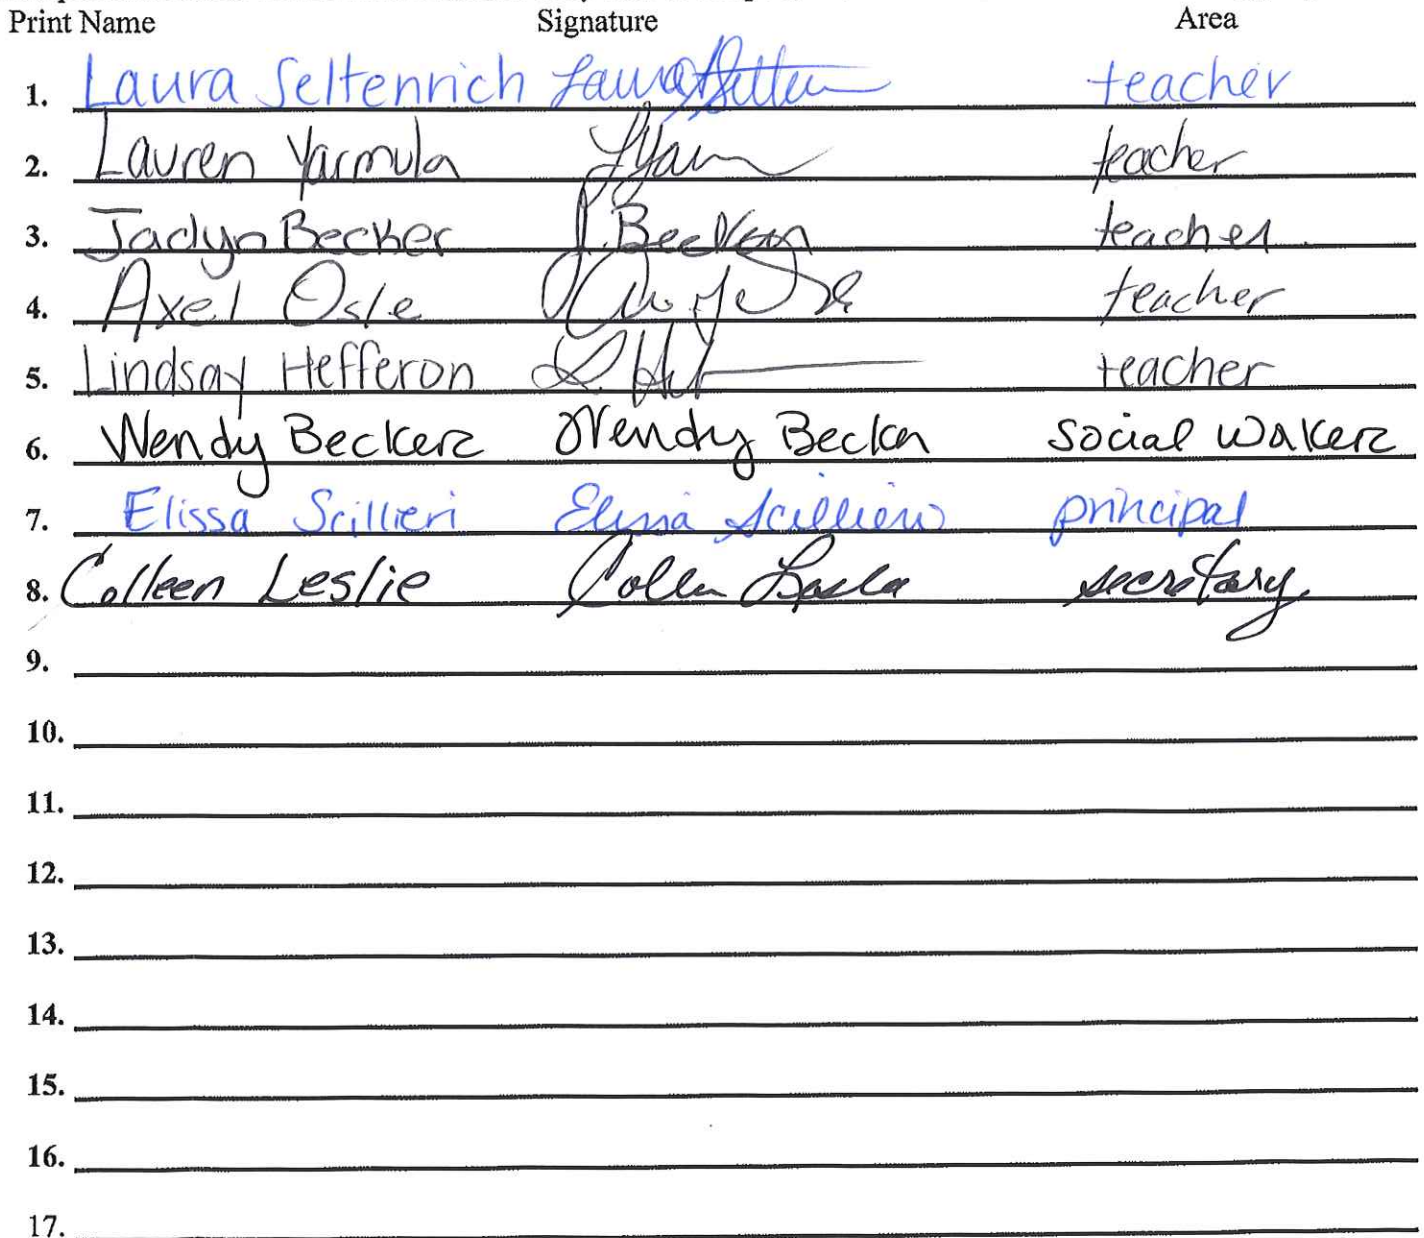 Print Name Signature Area
1. Laura Seltenrich teacher
2. Lauren Yarmula teacher
3. Jaclyn Becker J. Becker teacher
4. Axel Osle teacher
5. Lindsay Hefferon teacher
6. Wendy Becker Wendy Becker social worker
7. Elissa Scillieri Elissa Scillieri principal
8. Colleen Leslie Colleen Leslie secretary
9.
10.
11.
12.
13.
14.
15.
16.
17.